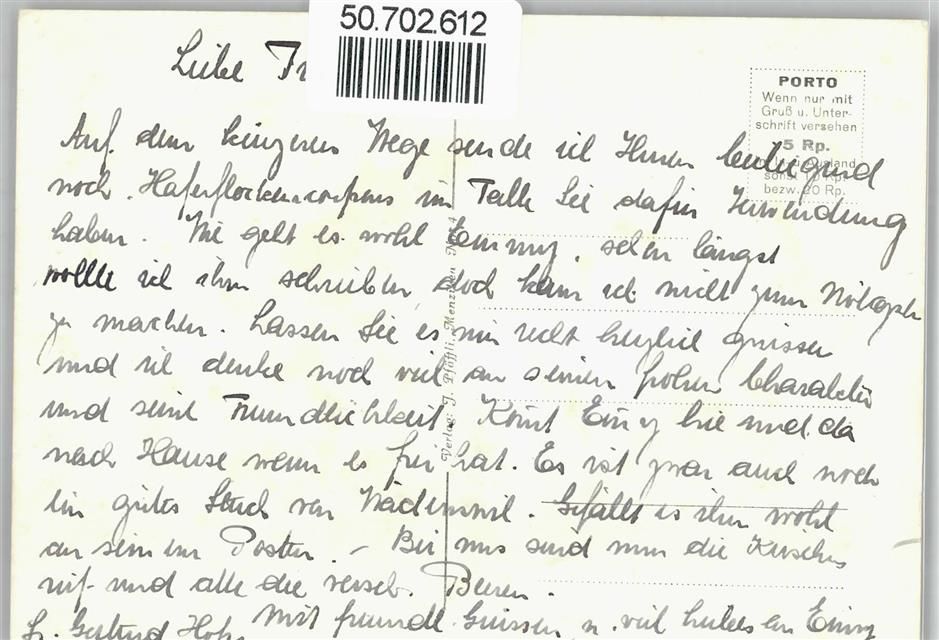 50.702.612
Liebe Fr
PORTO
Wenn nur mit
Gruß u. Unter-
schrift versehen
5 Rp.
bezw. 20 Rp.
Auf dem kürzeren Wege sende ich Ihnen beiliegend
noch Haferflockencoupons im Falle Sie dafür Verwendung
haben. Wie geht es wohl Emmy, schon längst
wollte ich ihm schreiben, doch kam ich nicht zum Nötigsten
zu machen. Lassen Sie es mir recht herzlich grüssen
und ich denke noch viel an seinen frohen Charakter
und seine Freundlichkeit. Kommt Emmy hie und da
nach Hause wenn es frei hat. Es ist zwar auch noch
ein gutes Stück von Wädenswil. Gefällt es ihm wohl
an seinem Posten. – Bei uns sind nun die Kirschen
reif und alle die versch. Beeren.
Mit freundl. Grüssen u. viel liebes an Emmy
Gertrud
Verlag: J. Pfäffli, Menziken